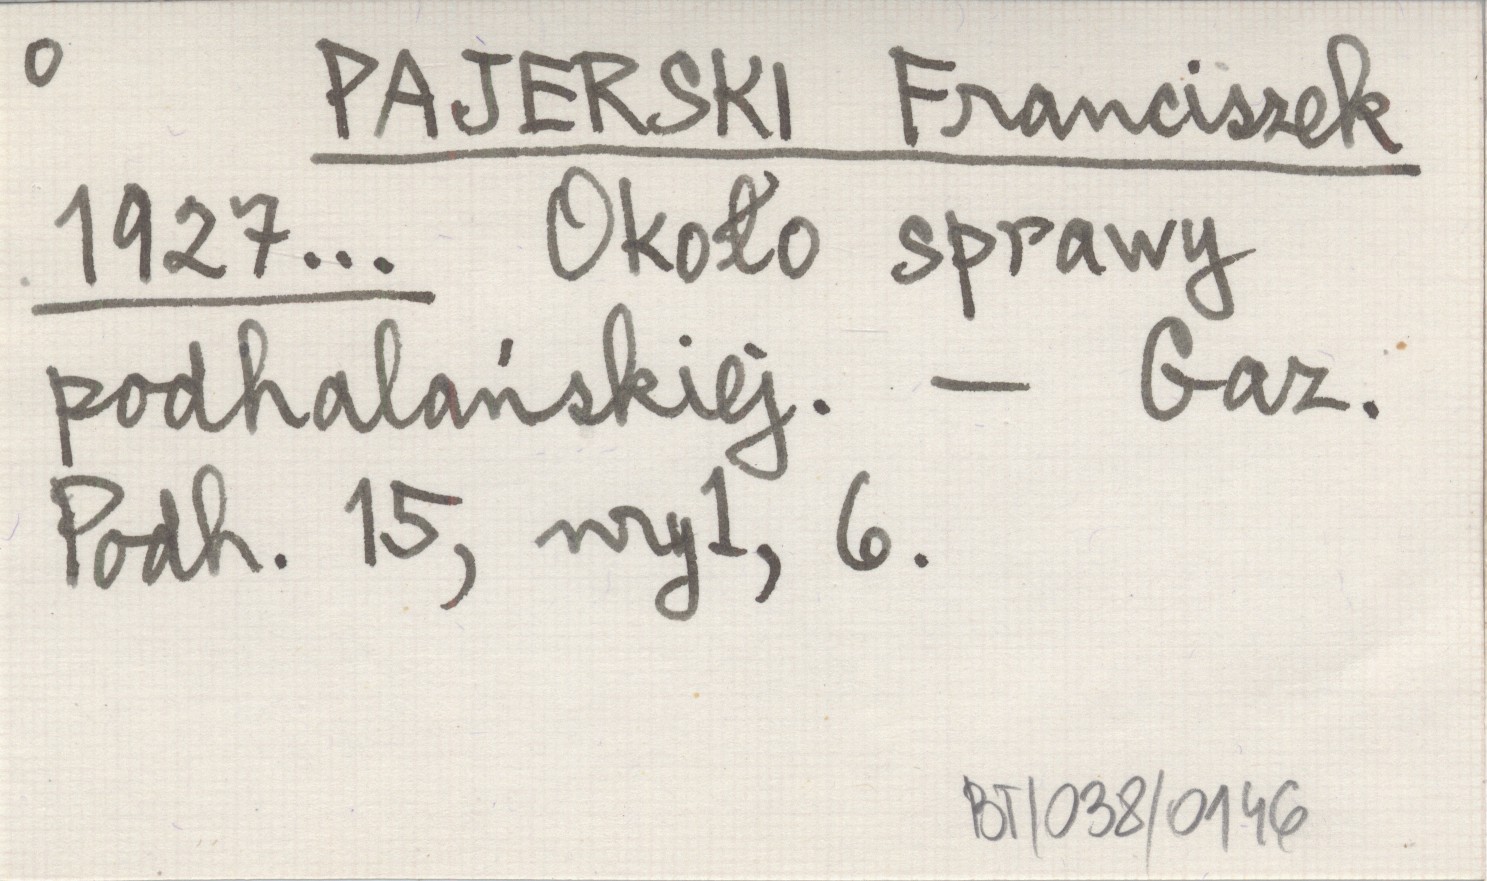 o PAJERSKI Franciszek
1927... Około sprawy
podhalańskiej. — Gaz.
Podh. 15, nry 1, 6.
BT/038/0146